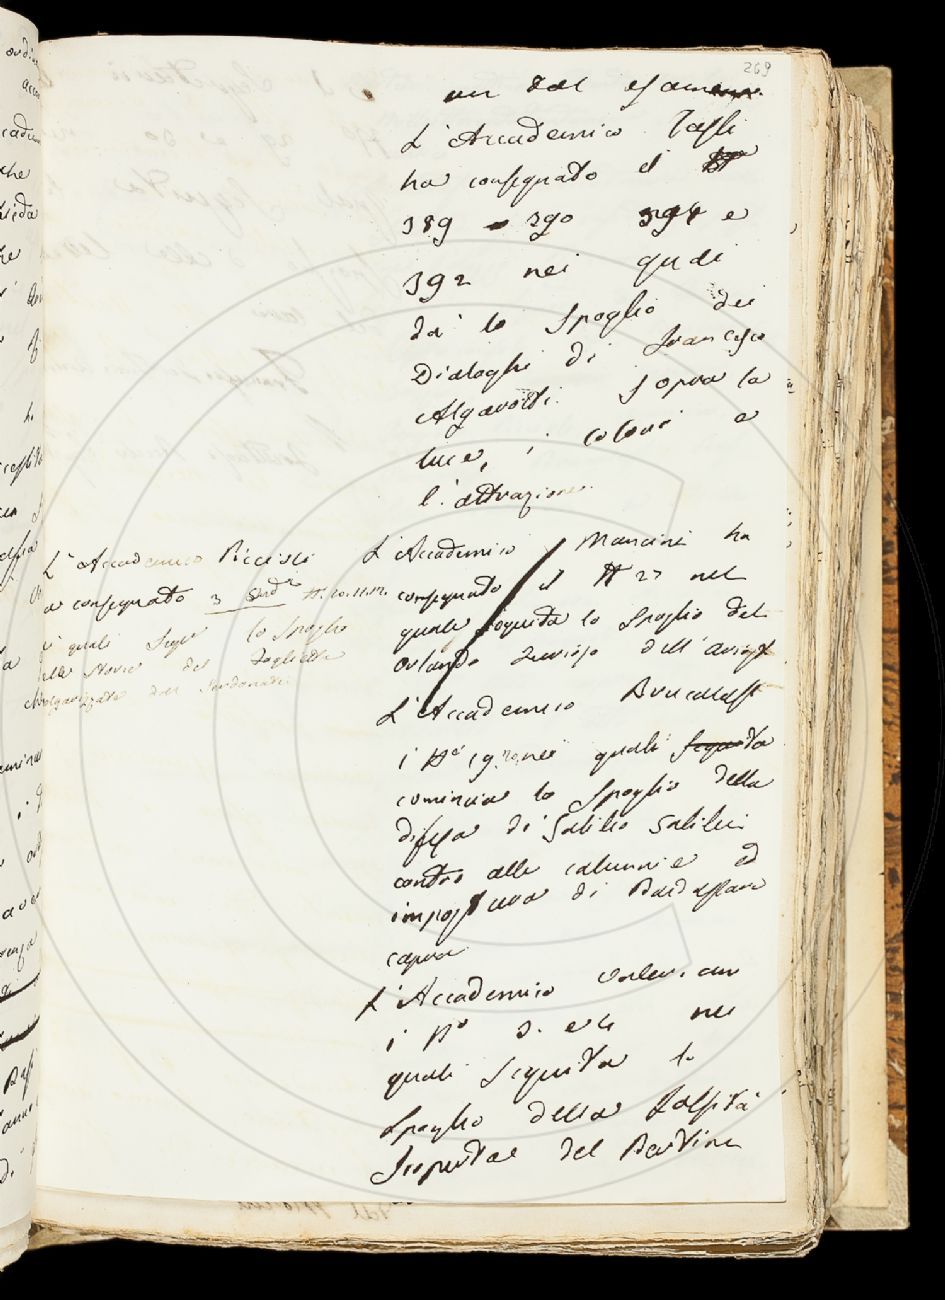 269
un tal esame
L'Accademico Taffi
ha consegnato il
389 390 391 e
392 nei quali
dà lo Spoglio dei
Dialoghi di Francesco
Algarotti Sopra la
luce, i colori e
l'attrazione
L'Accademico Riccioli
a consegnato 3 Qud.
i quali Segue lo Spoglio
delle Storie del
volgarizzate dal Serdonati
L'Accademico Mancini ha
consegnato il N 27 nel
quale Seguita lo Spoglio del
Orlando Furioso dell'Arios
L'Accademico Brucalassi
i Ni 19 20 nei quali Seguita
comincia lo Spoglio della
difesa di Galileo Galilei
contro alle calunnie ed
imposture di Baldassare
capra
L'Accademico
i Ni 3. e 4 nei
quali Seguita lo
Spoglio della Falsità
Scoperta del Bertini